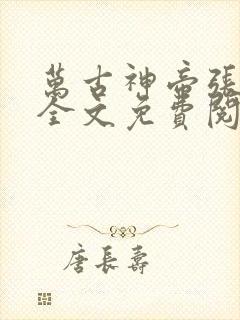 萬古神帝張
全文免費閱
唐長壽